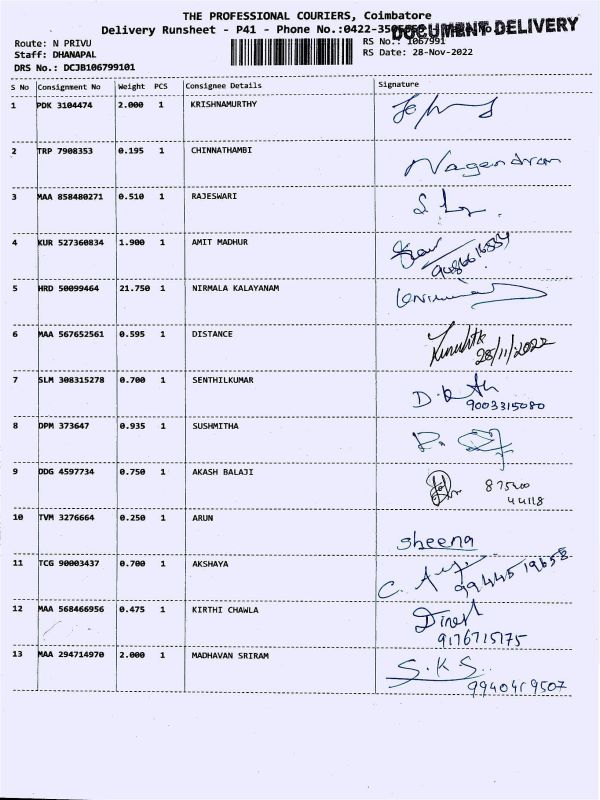 THE PROFESSIONAL COURIERS, Coimbatore
Delivery Runsheet - P41 - Phone No.:0422-35
DOCUMENT DELIVERY
Route: N PRIVU
RS No.: 1067991
Staff: DHANAPAL
RS Date: 28-Nov-2022
DRS No.: DCJB106799101
S No Consignment No Weight PCS Consignee Details Signature
1 PDK 3104474 2.000 1 KRISHNAMURTHY
2 TRP 7908353 0.195 1 CHINNATHAMBI Nagendran
3 MAA 858480271 0.510 1 RAJESWARI
4 KUR 527360834 1.900 1 AMIT MADHUR
5 HRD 50099464 21.750 1 NIRMALA KALAYANAM
6 MAA 567652561 0.595 1 DISTANCE
28/11/2022
7 SLM 308315278 0.700 1 SENTHILKUMAR
9003315080
8 DPM 373647 0.935 1 SUSHMITHA
9 DDG 4597734 0.750 1 AKASH BALAJI 87540
44118
10 TVM 3276664 0.250 1 ARUN
sheena
11 TCG 90003437 0.700 1 AKSHAYA
9944519658
12 MAA 568466956 0.475 1 KIRTHI CHAWLA
9176715175
13 MAA 294714970 2.000 1 MADHAVAN SRIRAM S.K S..
9940419507